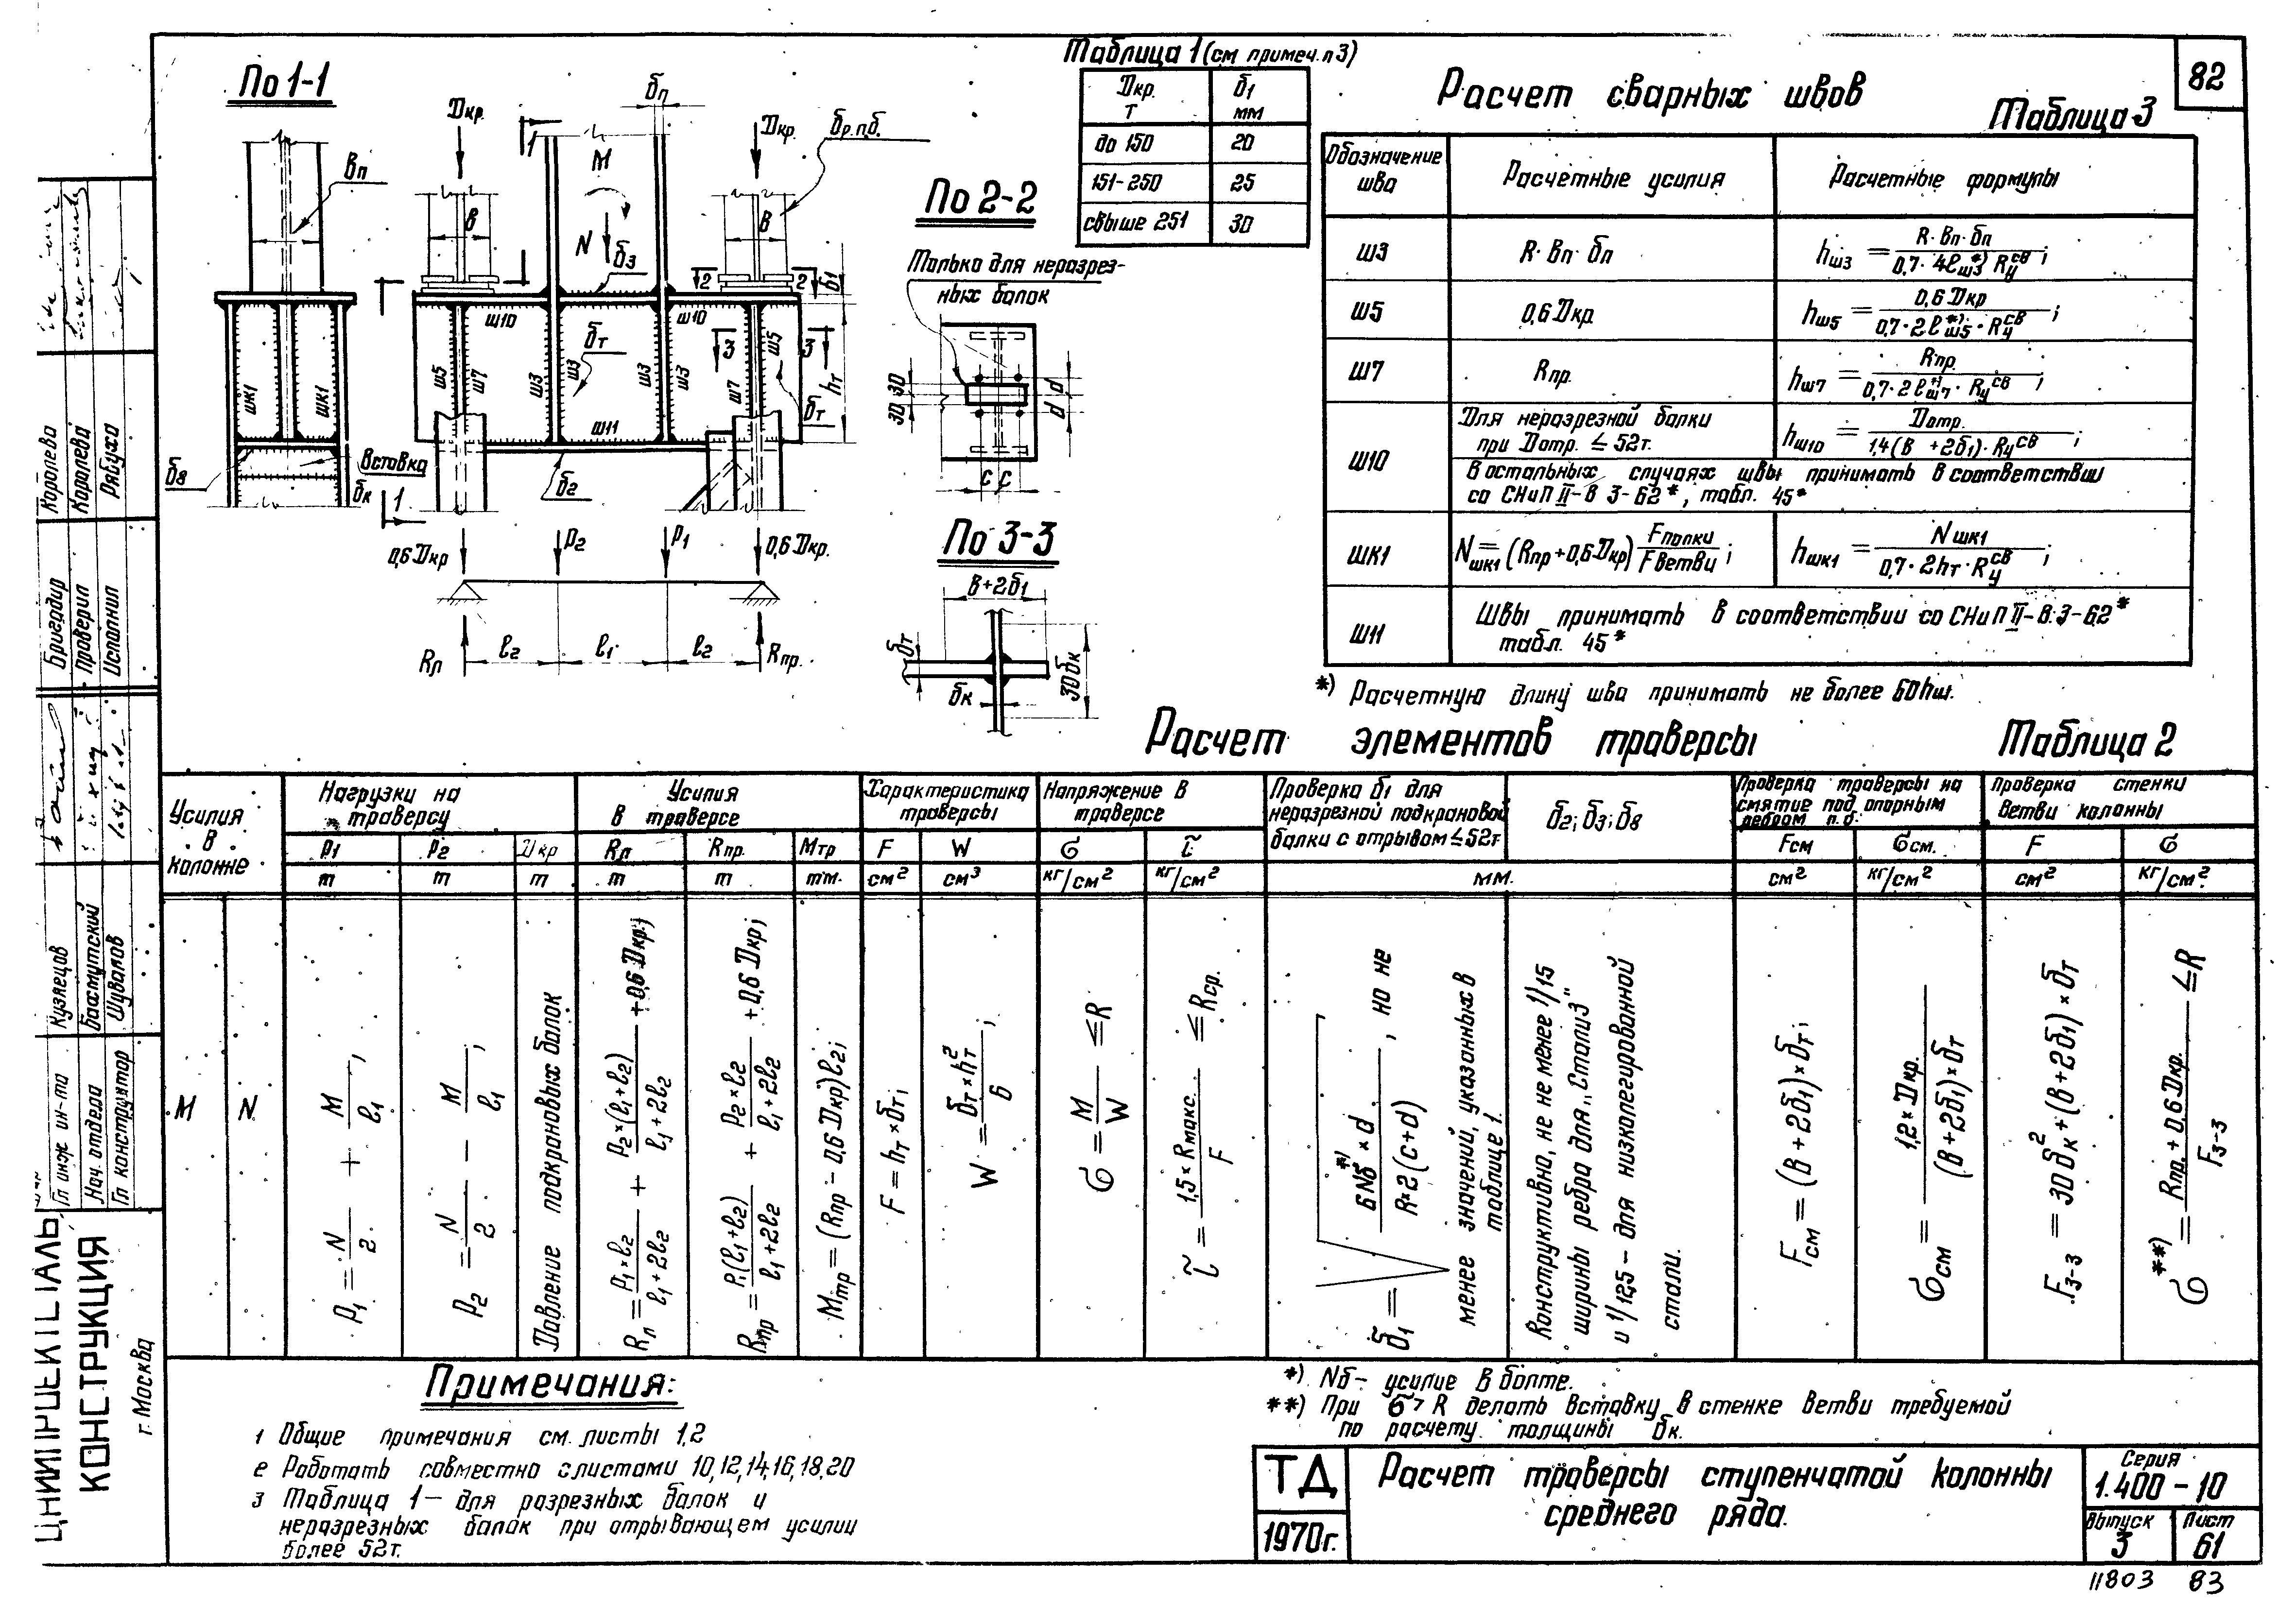 82
По 1-1
Дкр.
δп
1
Дкр.
δр.п.б.
М
N
Вп
в
в
δ3
2
2
δ1
ш10
ш10
δт
3
3
ш5
ш7
ш3
ш3
ш3
ш3
ш7
ш5
hт
δт
шк1
шк1
ш11
δ8
вставка
δк
δ2
1
0,6 Дкр
P2
P1
0,6 Дкр.
Rл
ℓ2
ℓ1
ℓ2
Rпр.
По 2-2
Только для неразрез-
ных балок
30
30
d
d
c
c
По 3-3
в+2δ1
δт
δк
30δк
Таблица 1 (см примеч. п 3)
Дкр. Т | δ1 мм
до 150 | 20
151-250 | 25
свыше 251 | 30
Расчет сварных швов
Таблица 3
Обозначение шва | Расчетные усилия | Расчетные формулы
ш3 | R·Вп·δп | hш3 = R·Вп·δп / 0,7·4ℓш3*) Rу св ;
ш5 | 0,6 Дкр | hш5 = 0,6 Дкр / 0,7·2ℓш5*)·Rу св ;
ш7 | Rпр. | hш7 = Rпр. / 0,7·2ℓш7*)·Rу св ;
ш10 | Для неразрезной балки при Dотр. ≤ 52т. | hш10 = Dотр. / 1,4(в+2δ1)·Rу св ;
В остальных случаях швы принимать в соответствии
со СНиП II-В 3-62*, табл. 45*
шк1 | Nшк1 = (Rпр+0,6Дкр) Fполки / Fветви ; | hшк1 = Nшк1 / 0,7·2hт·Rу св ;
ш11 | Швы принимать в соответствии со СНиП II-В.3-62*
табл. 45*
*) Расчетную длину шва принимать не более 60hш.
Расчет элементов траверсы
Таблица 2
Усилия в колонне | Нагрузки на траверсу | Усилия в траверсе | Характеристика траверсы | Напряжение в траверсе | Проверка δ1 для неразрезной подкрановой балки с отрывом ≤52т | δ2; δ3; δ8 | Проверка траверсы на смятие под опорным ребром п.б. | Проверка стенки ветви колонны
P1 | P2 | Дкр | Rл | Rпр. | Мтр | F | W | σ | τ | Fсм | σсм. | F | σ
т | т | т | т | т | тм. | см² | см³ | кг/см² | кг/см² | мм. | см² | кг/см² | см² | кг/см²
М
N
P1 = N/2 + М/ℓ1 ,
P2 = N/2 − М/ℓ1 ,
Давление подкрановых балок
Rл = P1×ℓ2 / ℓ1+2ℓ2 + P2×(ℓ1+ℓ2) / ℓ1+2ℓ2 + 0,6 Дкр;
Rпр = P1(ℓ1+ℓ2) / ℓ1+2ℓ2 + P2×ℓ2 / ℓ1+2ℓ2 + 0,6 Дкр;
Мтр = (Rпр − 0,6 Дкр)ℓ2;
F = hт × δт;
W = δт×hт² / 6 ,
σ = М/W ≤ R
τ = 1,5×Rмакс. / F ≤ Rср.
δ1 = √ 6Nб*)×d / R×2(c+d) , но не
менее значений, указанных в
таблице 1.
Конструктивно, не не менее 1/15
ширины ребра для „Стали3"
и 1/12,5 - для низколегированной
стали.
Fсм = (в+2δ1)×δт;
σсм = 1,2×Дкр. / (в+2δ1)×δт
F3-3 = 30δк²+(в+2δ1)×δт
σ**) = Rпр.+0,6Дкр. / F3-3 ≤ R
Примечания:
1 Общие примечания см. листы 1,2
2 Работать совместно с листами 10,12,14,16,18,20
3 Таблица 1 — для разрезных балок и
неразрезных балок при отрывающем усилии
более 52т.
*) Nб - усилие в болте.
**) При σ > R делать вставку в стенке ветви требуемой
по расчету толщины δк.
ТД
1970г.
Расчет траверсы ступенчатой колонны
среднего ряда.
Серия
1.400-10
Выпуск
3
Лист
61
11803 83
Королева
Королева
Рябуха
Бригадир
Проверил
Исполнил
Кузнецов
Бахмутский
Шувалов
Гл инж ин-та
Нач. отдела
Гл конструктор
ЦНИИПРОЕКТСТАЛЬ
КОНСТРУКЦИЯ
г. Москва